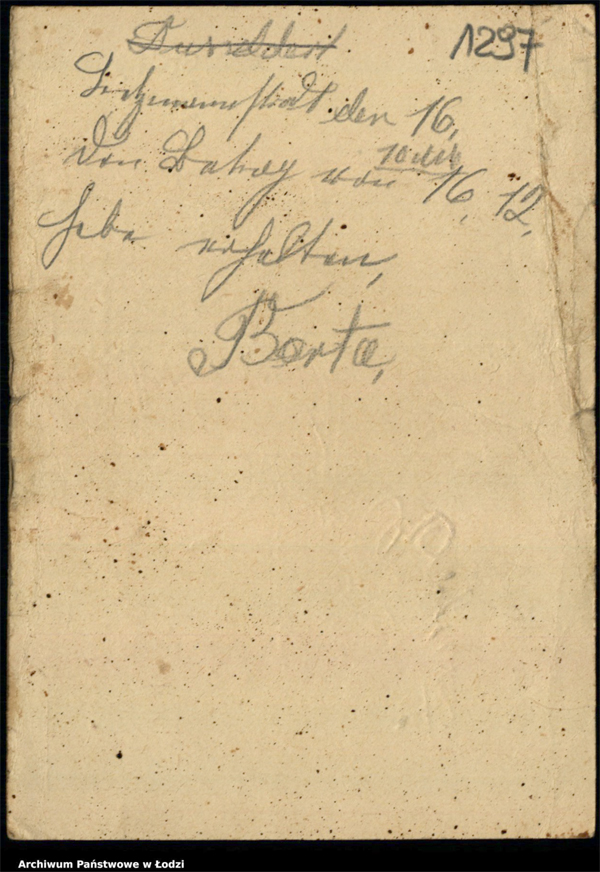 1297
Düsseldorf
Litzmannstadt den 16,
Den Betrag von 10 Mk 16, 12,
habe erhalten,
Berta,
Archiwum Państwowe w Łodzi